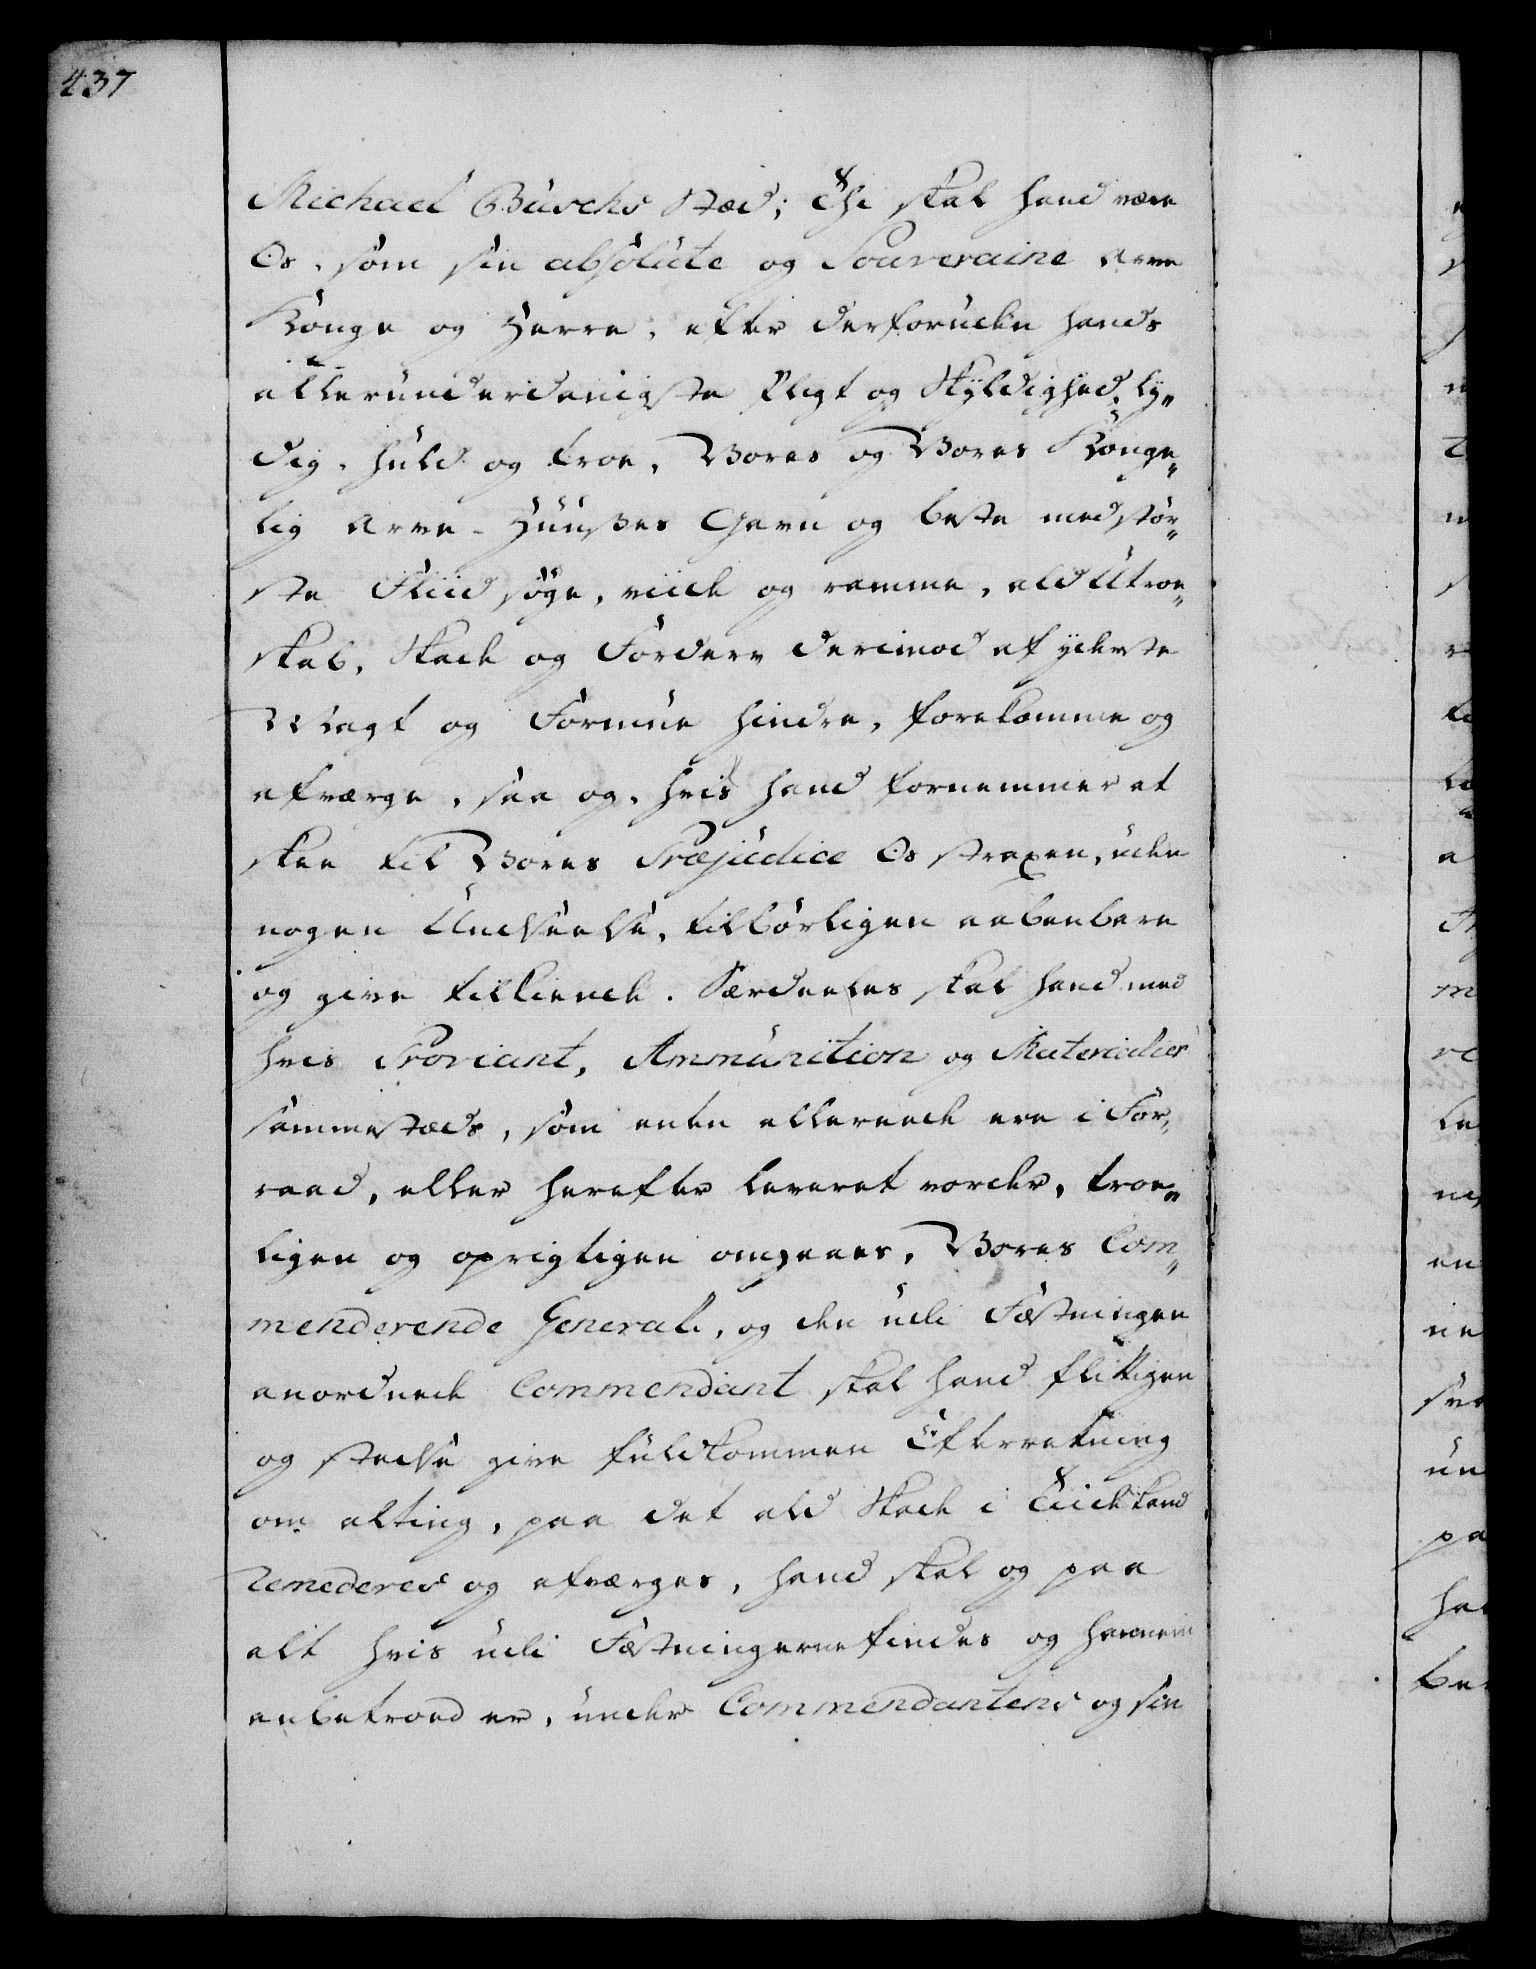 437
Michael Buschs Stæd; Thi skal hand være
Os, som sin absolute og Souveraine Arve
Konge og Herre, efter derforuden hands
allerunderdanigste Pligt og Skyldighed, ly„
dig, huld og troe, Vores og Vores Konge„
lig Arve-Huuses Gavn og beste med stør„
ste Fliid søge, viide og ramme, ald Utroe„
skab, Skade og Forderv derimod af yderste
Magt og Formue hindre, forekomme og
afværge, saa og, hvis hand fornemmer at
skee til Vores Præjudice Os straxen, uden
nogen Undseelse, tilbørligen aabenbare
og give tilkiende. Særdeeles skal hand med
hvis Proviant, Ammunition og Materialier
sammestæds, som enten allereede ere i For„
raad, eller herefter leveret vorder, troe„
ligen og oprigtigen omgaaes, Vores Com„
menderende General, og den udi Fæstningen
anordnede Commendant skal hand flittigen
og stedse give fuldkommen Efterretning
om alting, paa det ald Skade i Tiide kand
remederes og afværges, hand skal og paa
alt hvis udi Fæstningerne findes og hannem
anbetroed er, under Commendantens og sin